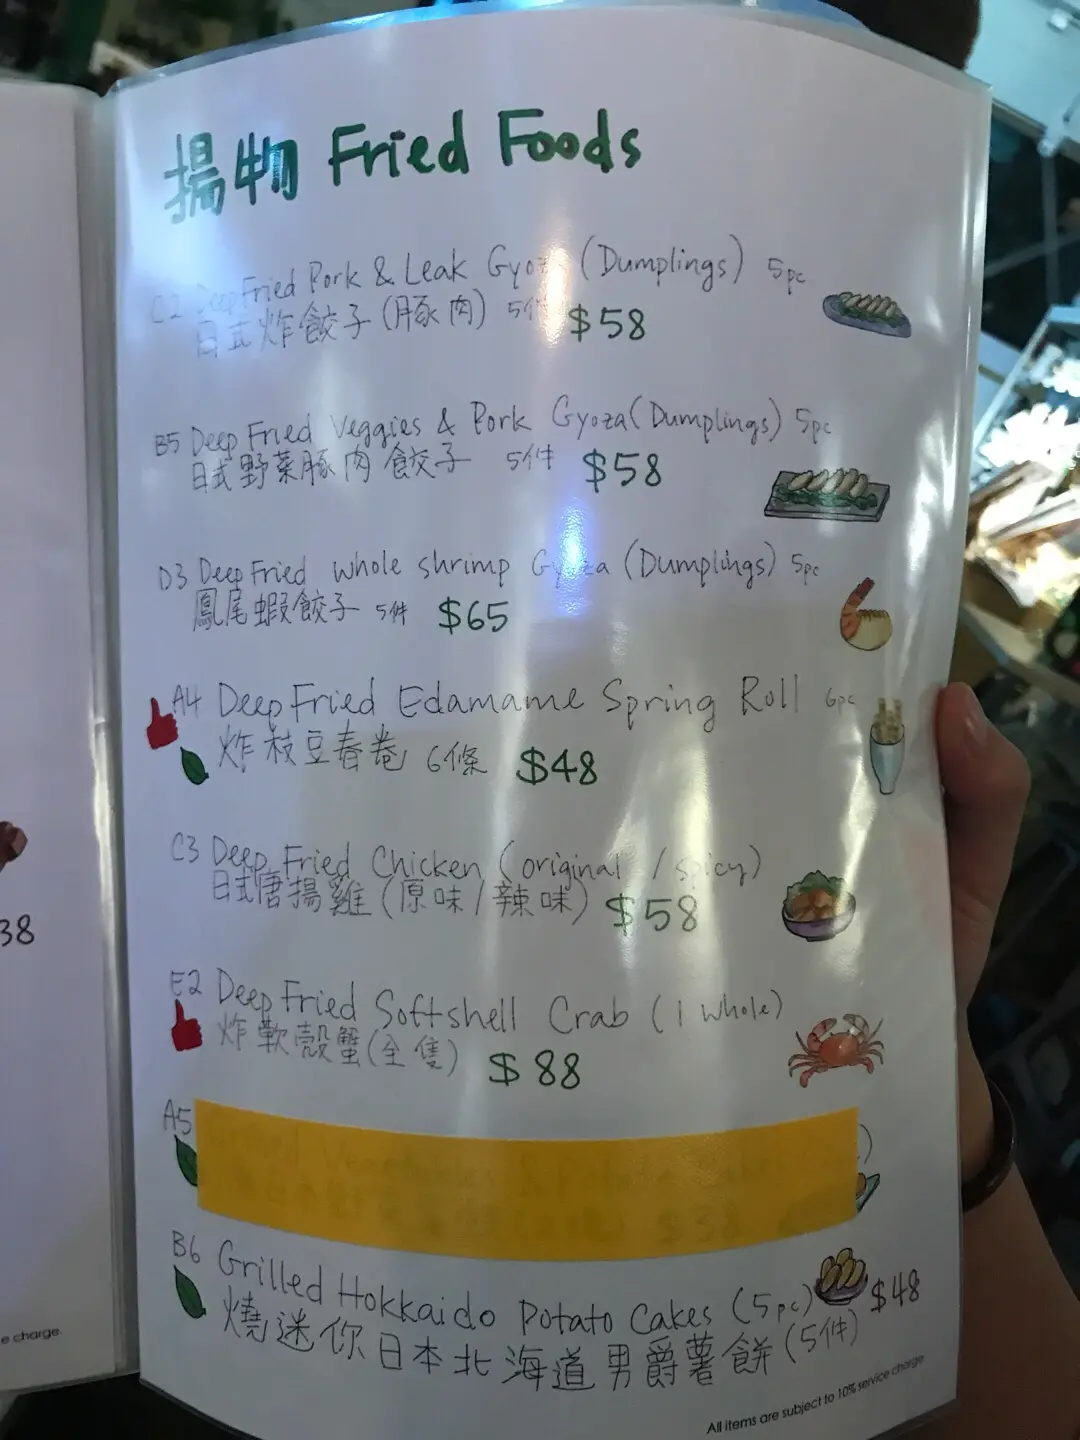 揚物 Fried Foods
C2 Deep Fried Pork & Leak Gyoza (Dumplings) 5pc
日式炸餃子(豚肉) 5件 $58
B5 Deep Fried Veggies & Pork Gyoza(Dumplings) 5pc
日式野菜豚肉餃子 5件 $58
D3 Deep Fried whole shrimp Gyoza (Dumplings) 5pc
鳳尾蝦餃子 5件 $65
A4 Deep Fried Edamame Spring Roll 6pc
炸枝豆春卷 6條 $48
C3 Deep Fried Chicken (original / spicy)
日式唐揚雞(原味/辣味) $58
E2 Deep Fried Softshell Crab (1 whole)
炸軟殼蟹(全隻) $88
A5
B6 Grilled Hokkaido Potato Cakes (5pc) $48
燒迷你日本北海道男爵薯餅(5件)
All items are subject to 10% service charge
38
e charge.